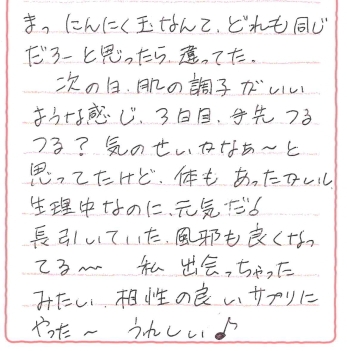 まっ にんにく玉なんて、どれも同じ
だろーと思ったら、違ってた。
次の日、肌の調子がいい
ような感じ、3日目、手先つる
つる？気のせいかなぁ〜と
思ってたけど、体もあったかいし
生理中なのに、元気だ♪
長引いていた、風邪も良くなっ
てる〜〜 私 出会っちゃった
みたい、相性の良いサプリに
やった〜 うれしい♪